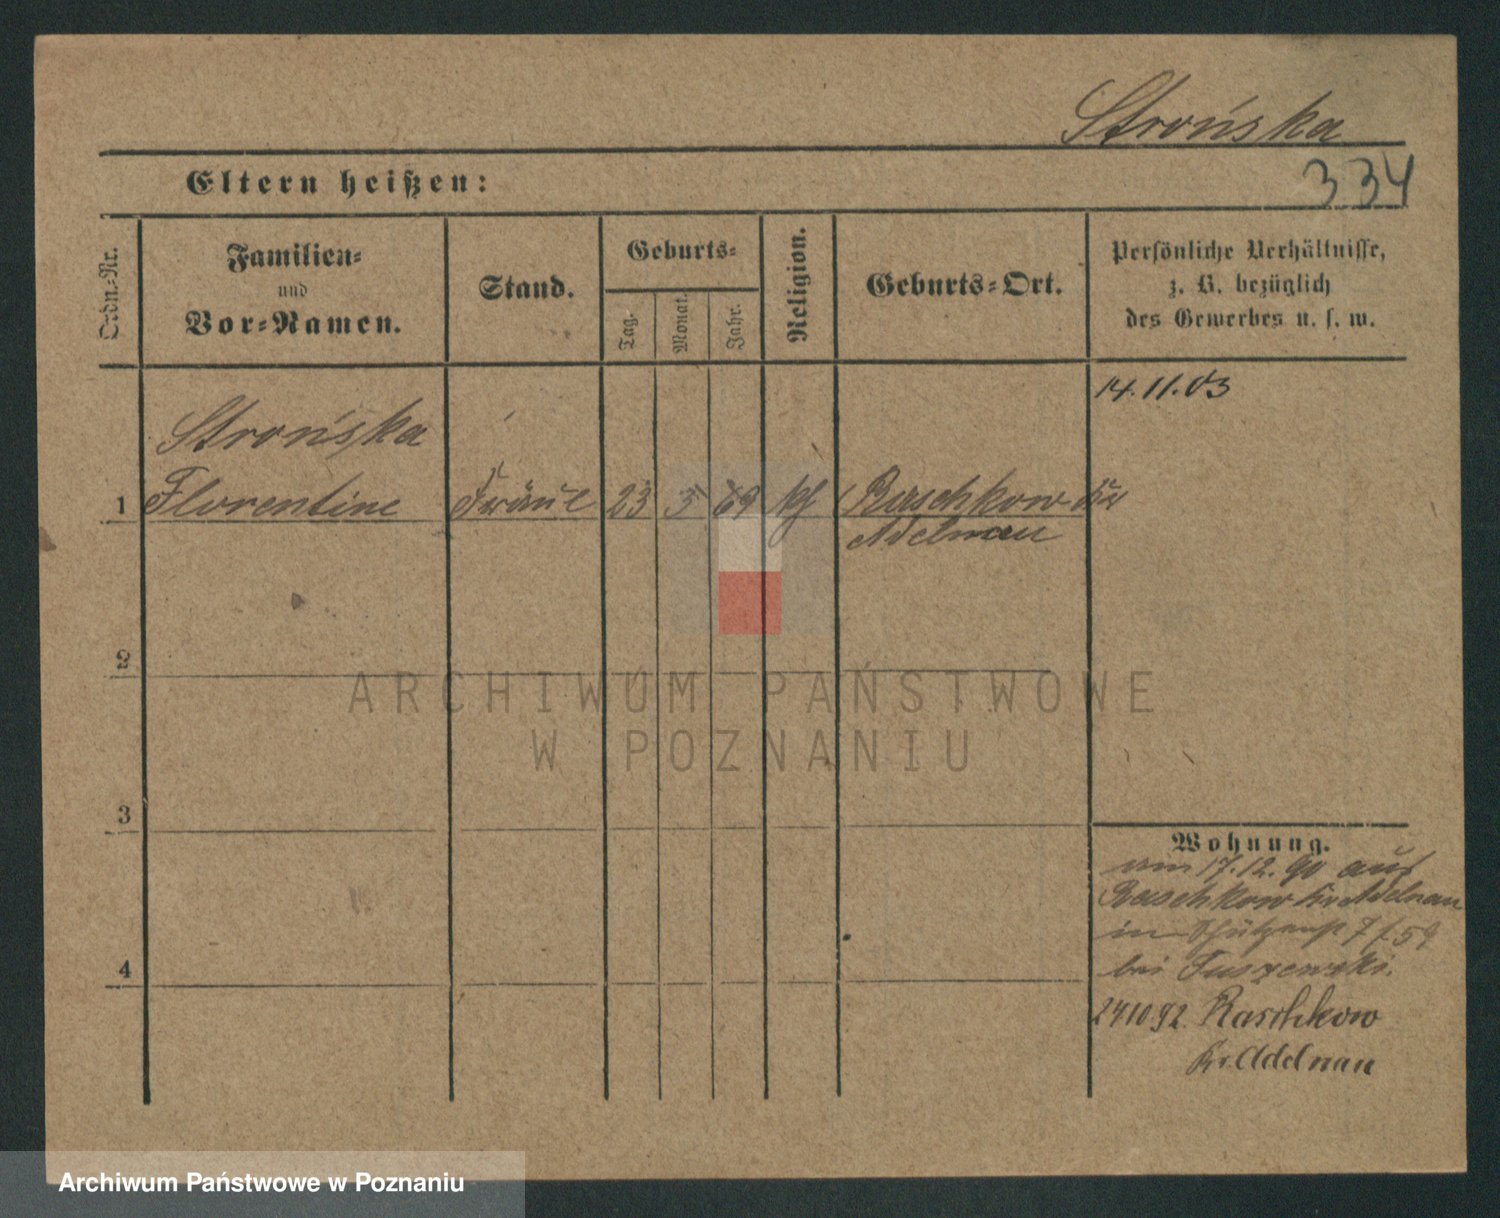 Strońska
Eltern heißen:
334
Ordn.-Nr.
Familien-
und
Vor-Namen.
Stand.
Geburts-
Tag.
Monat.
Jahr.
Religion.
Geburts-Ort.
Persönliche Verhältnisse,
z. B. bezüglich
des Gewerbes u. s. w.
14.11.03
Strońska
1 Florentine Fräul 23 5 69 kh Raschkow Kr
Adelnau
2
3
4
Wohnung.
am 17.12.90 aus
Raschkow Kr Adelnau
in Schützenstr 7
bei Tuszewski.
24 10 92. Raschkow
Kr. Adelnau
ARCHIWUM PAŃSTWOWE
W POZNANIU
Archiwum Państwowe w Poznaniu